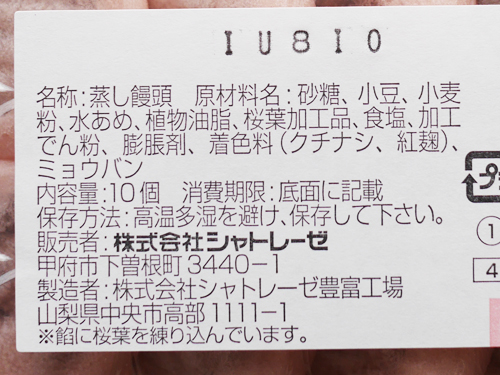 IU810
名称:蒸し饅頭　原材料名:砂糖、小豆、小麦
粉、水あめ、植物油脂、桜葉加工品、食塩、加工
でん粉、膨脹剤、着色料(クチナシ、紅麹)、
ミョウバン
内容量:10個　消費期限:底面に記載
保存方法:高温多湿を避け、保存して下さい。
販売者:株式会社シャトレーゼ
甲府市下曽根町3440−1
製造者:株式会社シャトレーゼ豊富工場
山梨県中央市高部1111−1
※餡に桜葉を練り込んでいます。
プ
1
4